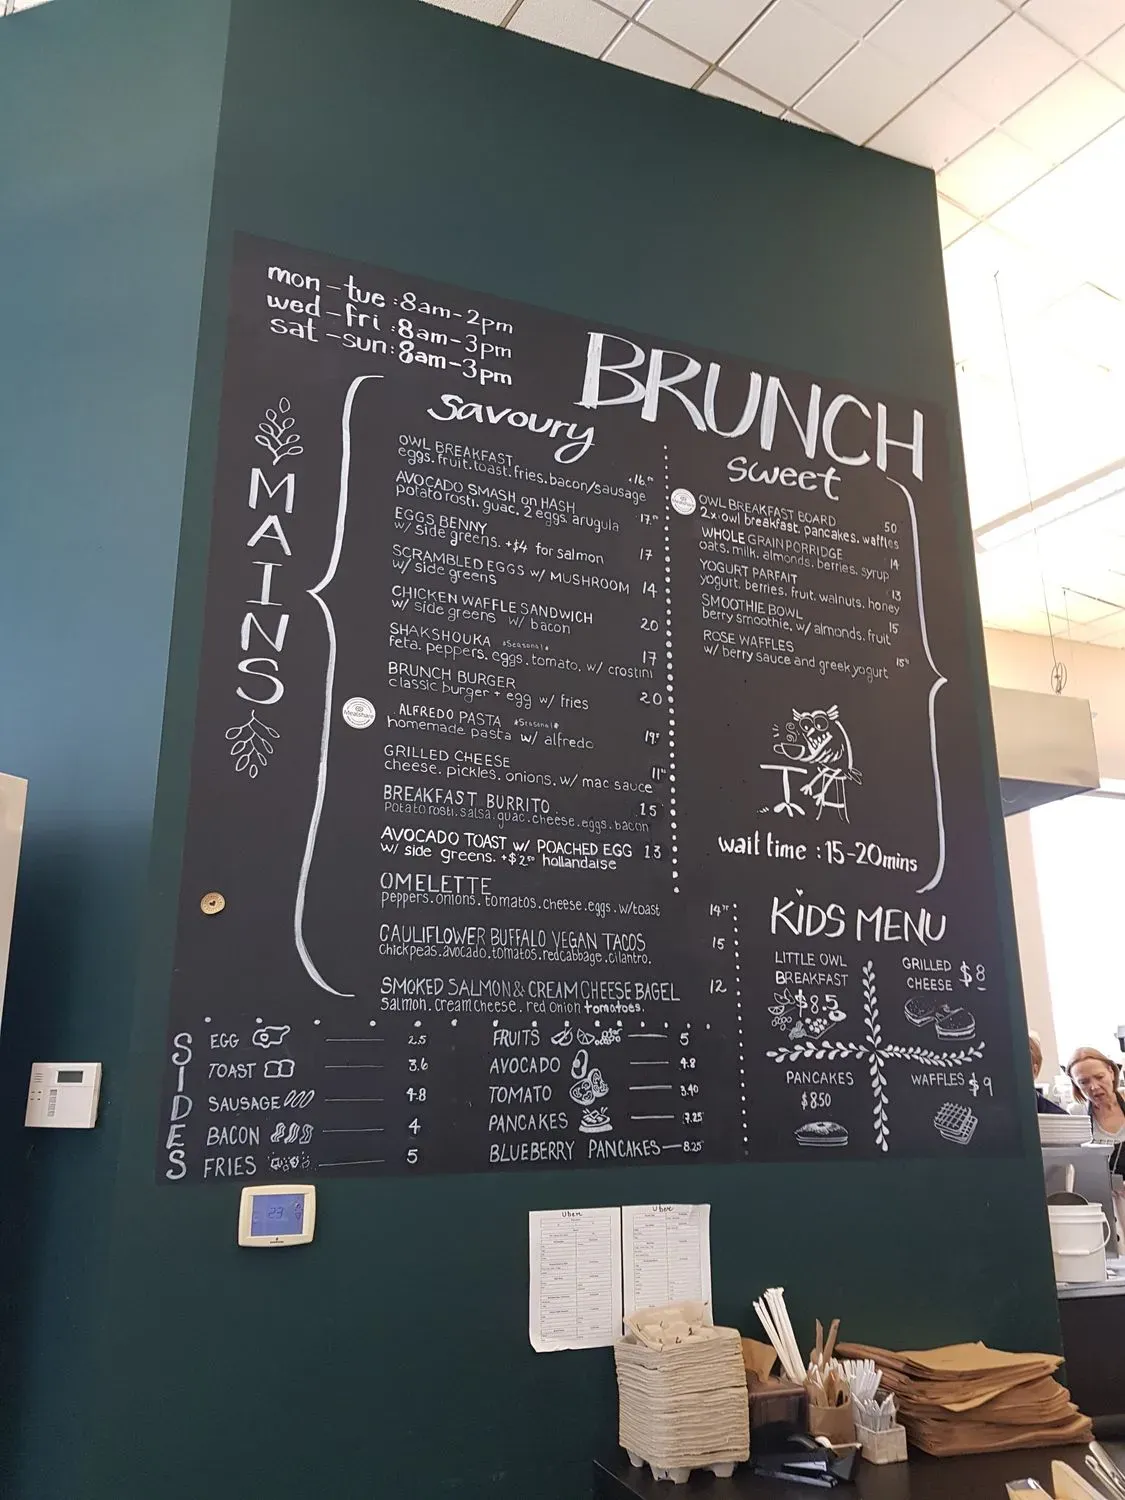 mon-tue:8am-2pm
wed-fri:8am-3pm
sat-sun:8am-3pm
BRUNCH
MAINS
savoury
OWL BREAKFAST
eggs.fruit.toast.fries.bacon/sausage
AVOCADO SMASH on HASH
potato rosti. guac. 2 eggs. arugula
EGGS BENNY 17
w/ side greens. +$4 for salmon
SCRAMBLED EGGS w/ MUSHROOM 14
w/ side greens
CHICKEN WAFFLE SANDWICH 20
w/ side greens w/ bacon
SHAKSHOUKA *Seasonal* 17
feta. peppers. eggs. tomato. w/ crostini
BRUNCH BURGER 20
classic burger + egg w/ fries
Mealshare
ALFREDO PASTA *Seasonal*
homemade pasta w/ alfredo
GRILLED CHEESE
cheese. pickles. onions. w/ mac sauce
BREAKFAST BURRITO 15
potato rosti.salsa.guac.cheese.eggs.bacon
AVOCADO TOAST w/ POACHED EGG 13
w/ side greens. +$2.50 hollandaise
OMELETTE
peppers.onions.tomatos.cheese.eggs.w/toast
CAULIFLOWER BUFFALO VEGAN TACOS 15
chickpeas.avocado.tomatos.redcabbage.cilantro.
SMOKED SALMON & CREAM CHEESE BAGEL 12
salmon. cream cheese. red onion tomatoes.
sweet
OWL BREAKFAST BOARD 50
2x owl breakfast. pancakes. waffles
WHOLE GRAIN PORRIDGE 14
oats. milk. almonds. berries. syrup
YOGURT PARFAIT 13
yogurt. berries. fruit. walnuts. honey
SMOOTHIE BOWL 15
berry smoothie. w/ almonds. fruit
ROSE WAFFLES
w/ berry sauce and greek yogurt
wait time : 15-20mins
KIDS MENU
LITTLE OWL
BREAKFAST
$8.5
GRILLED
CHEESE $8
PANCAKES
$8.50
WAFFLES $9
SIDES
EGG 2.5
TOAST 3.6
SAUSAGE 4.8
BACON 4
FRIES 5
FRUITS 5
AVOCADO 4.8
TOMATO 3.40
PANCAKES 7.25
BLUEBERRY PANCAKES 8.25
23